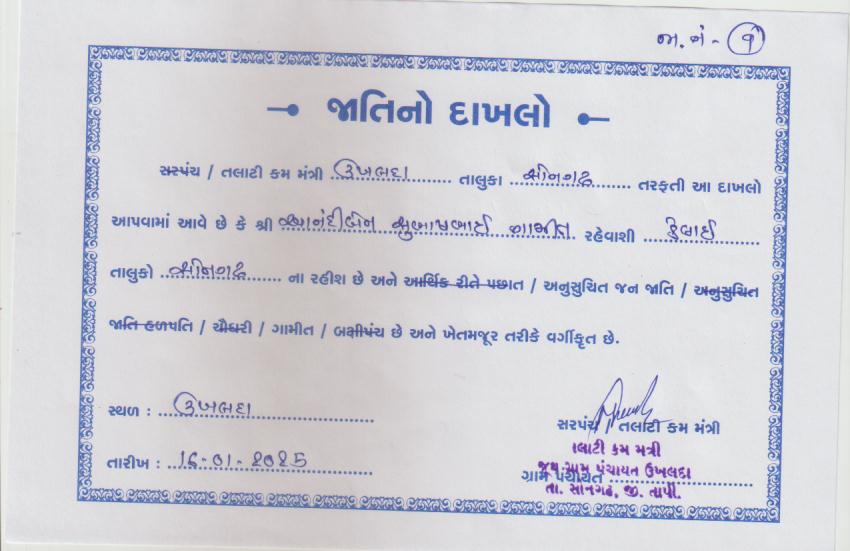 જા.નં - ૧
જાતિનો દાખલો
સરપંચ / તલાટી કમ મંત્રી ઉખલદા તાલુકા સોનગઢ તરફતી આ દાખલો
આપવામાં આવે છે કે શ્રી આનંદીબેન સુભાષભાઈ ગામીત રહેવાશી કેલાઈ
તાલુકો સોનગઢ ના રહીશ છે અને આર્થિક રીતે પછાત / અનુસુચિત જન જાતિ / અનુસુચિત
જાતિ હળપતિ / ચૌધરી / ગામીત / બક્ષીપંચ છે અને ખેતમજૂર તરીકે વર્ગીકૃત છે.
સ્થળ : ઉખલદા
સરપંચ તલાટી કમ મંત્રી
તારીખ : 16-01-2025
લાટી કમ મંત્રી
જુથ ગ્રામ પંચાયત ઉખલદા
ગ્રામ પંચાયત
તા. સોનગઢ, જી. તાપી.